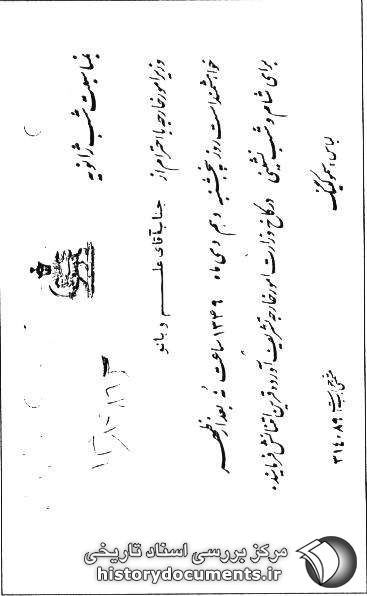 بمناسبت شب ژانویه
وزیر امور خارجه با احترام از جناب آقای علم و بانو
خواهشمند است روز پنجشنبه دهم دی ماه ۱۳۴۹ ساعت نه بعد از ظهر
برای شام و شب نشینی در کاخ وزارت امور خارجه تشریف آورده قرین امتنانش فرمایند.
لباس: سموکینگ
۳۱۴۰۸۹
مرکز بررسی اسناد تاریخی
historydocuments.ir